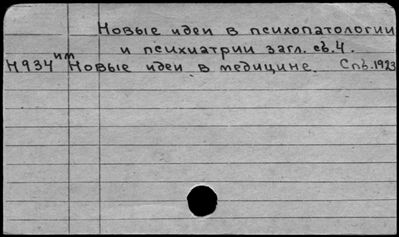 Новые идеи в психопатологии
и психиатрии загл. сб. 4.
им
Н934 Новые идеи в медицине. Спб. 1923